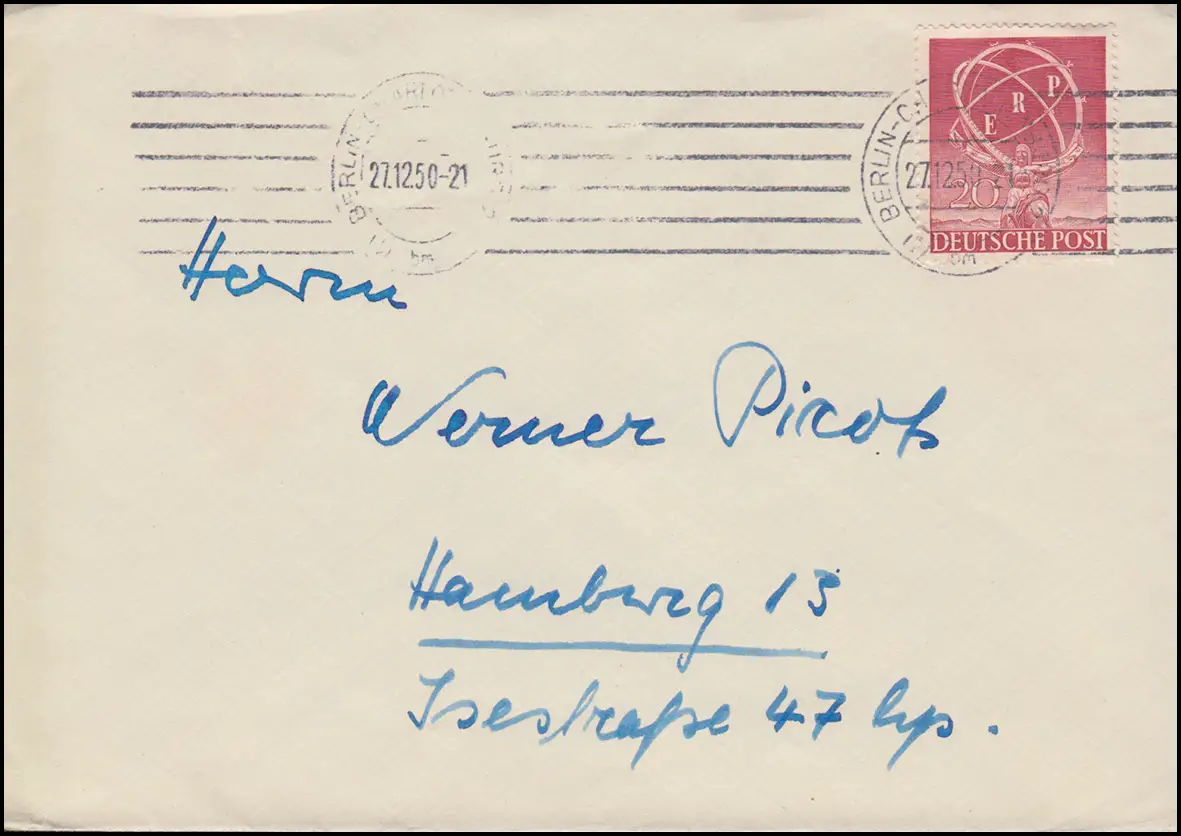 BERLIN-CHARLOTTENBURG
27.12.50-21
bm
BERLIN-CH
27.12.50-21
bm
E R P
20
DEUTSCHE POST
Herrn
Werner
Hamburg 13
Isestraße 47 hp.